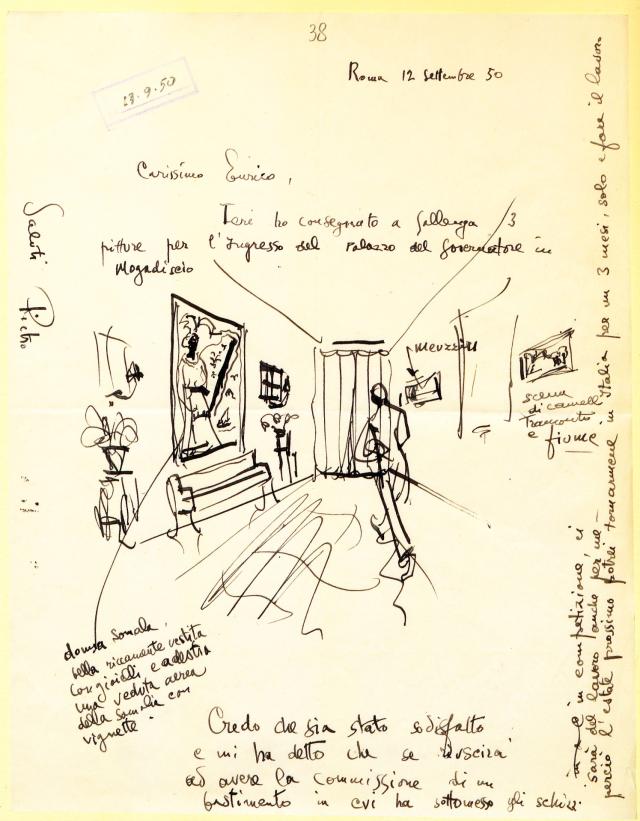 38
Roma 12 settembre 50
13.9.50
Carissimo Enrico,
Ieri ho consegnato a Gallenga 3
pitture per l'Ingresso del Palazzo del Governatore in
Mogadiscio
muezzin
scena
di cammelli
tramonto
e fiume
donna somala
bella riccamente vestita
con gioielli e a destra
una veduta aerea
della Somalia con
vignette.
Credo che sia stato sodisfatto
e mi ha detto che se riuscirà
ad avere la Commissione di un
bastimento in cui ha sottomesso gli schizzi
e in competizione, ci
sarà del lavoro anche per me -
perciò l'estate prossimo potrei tornarmene in Italia per un 3 mesi, solo e fare il lavoro
Saluti Pietro